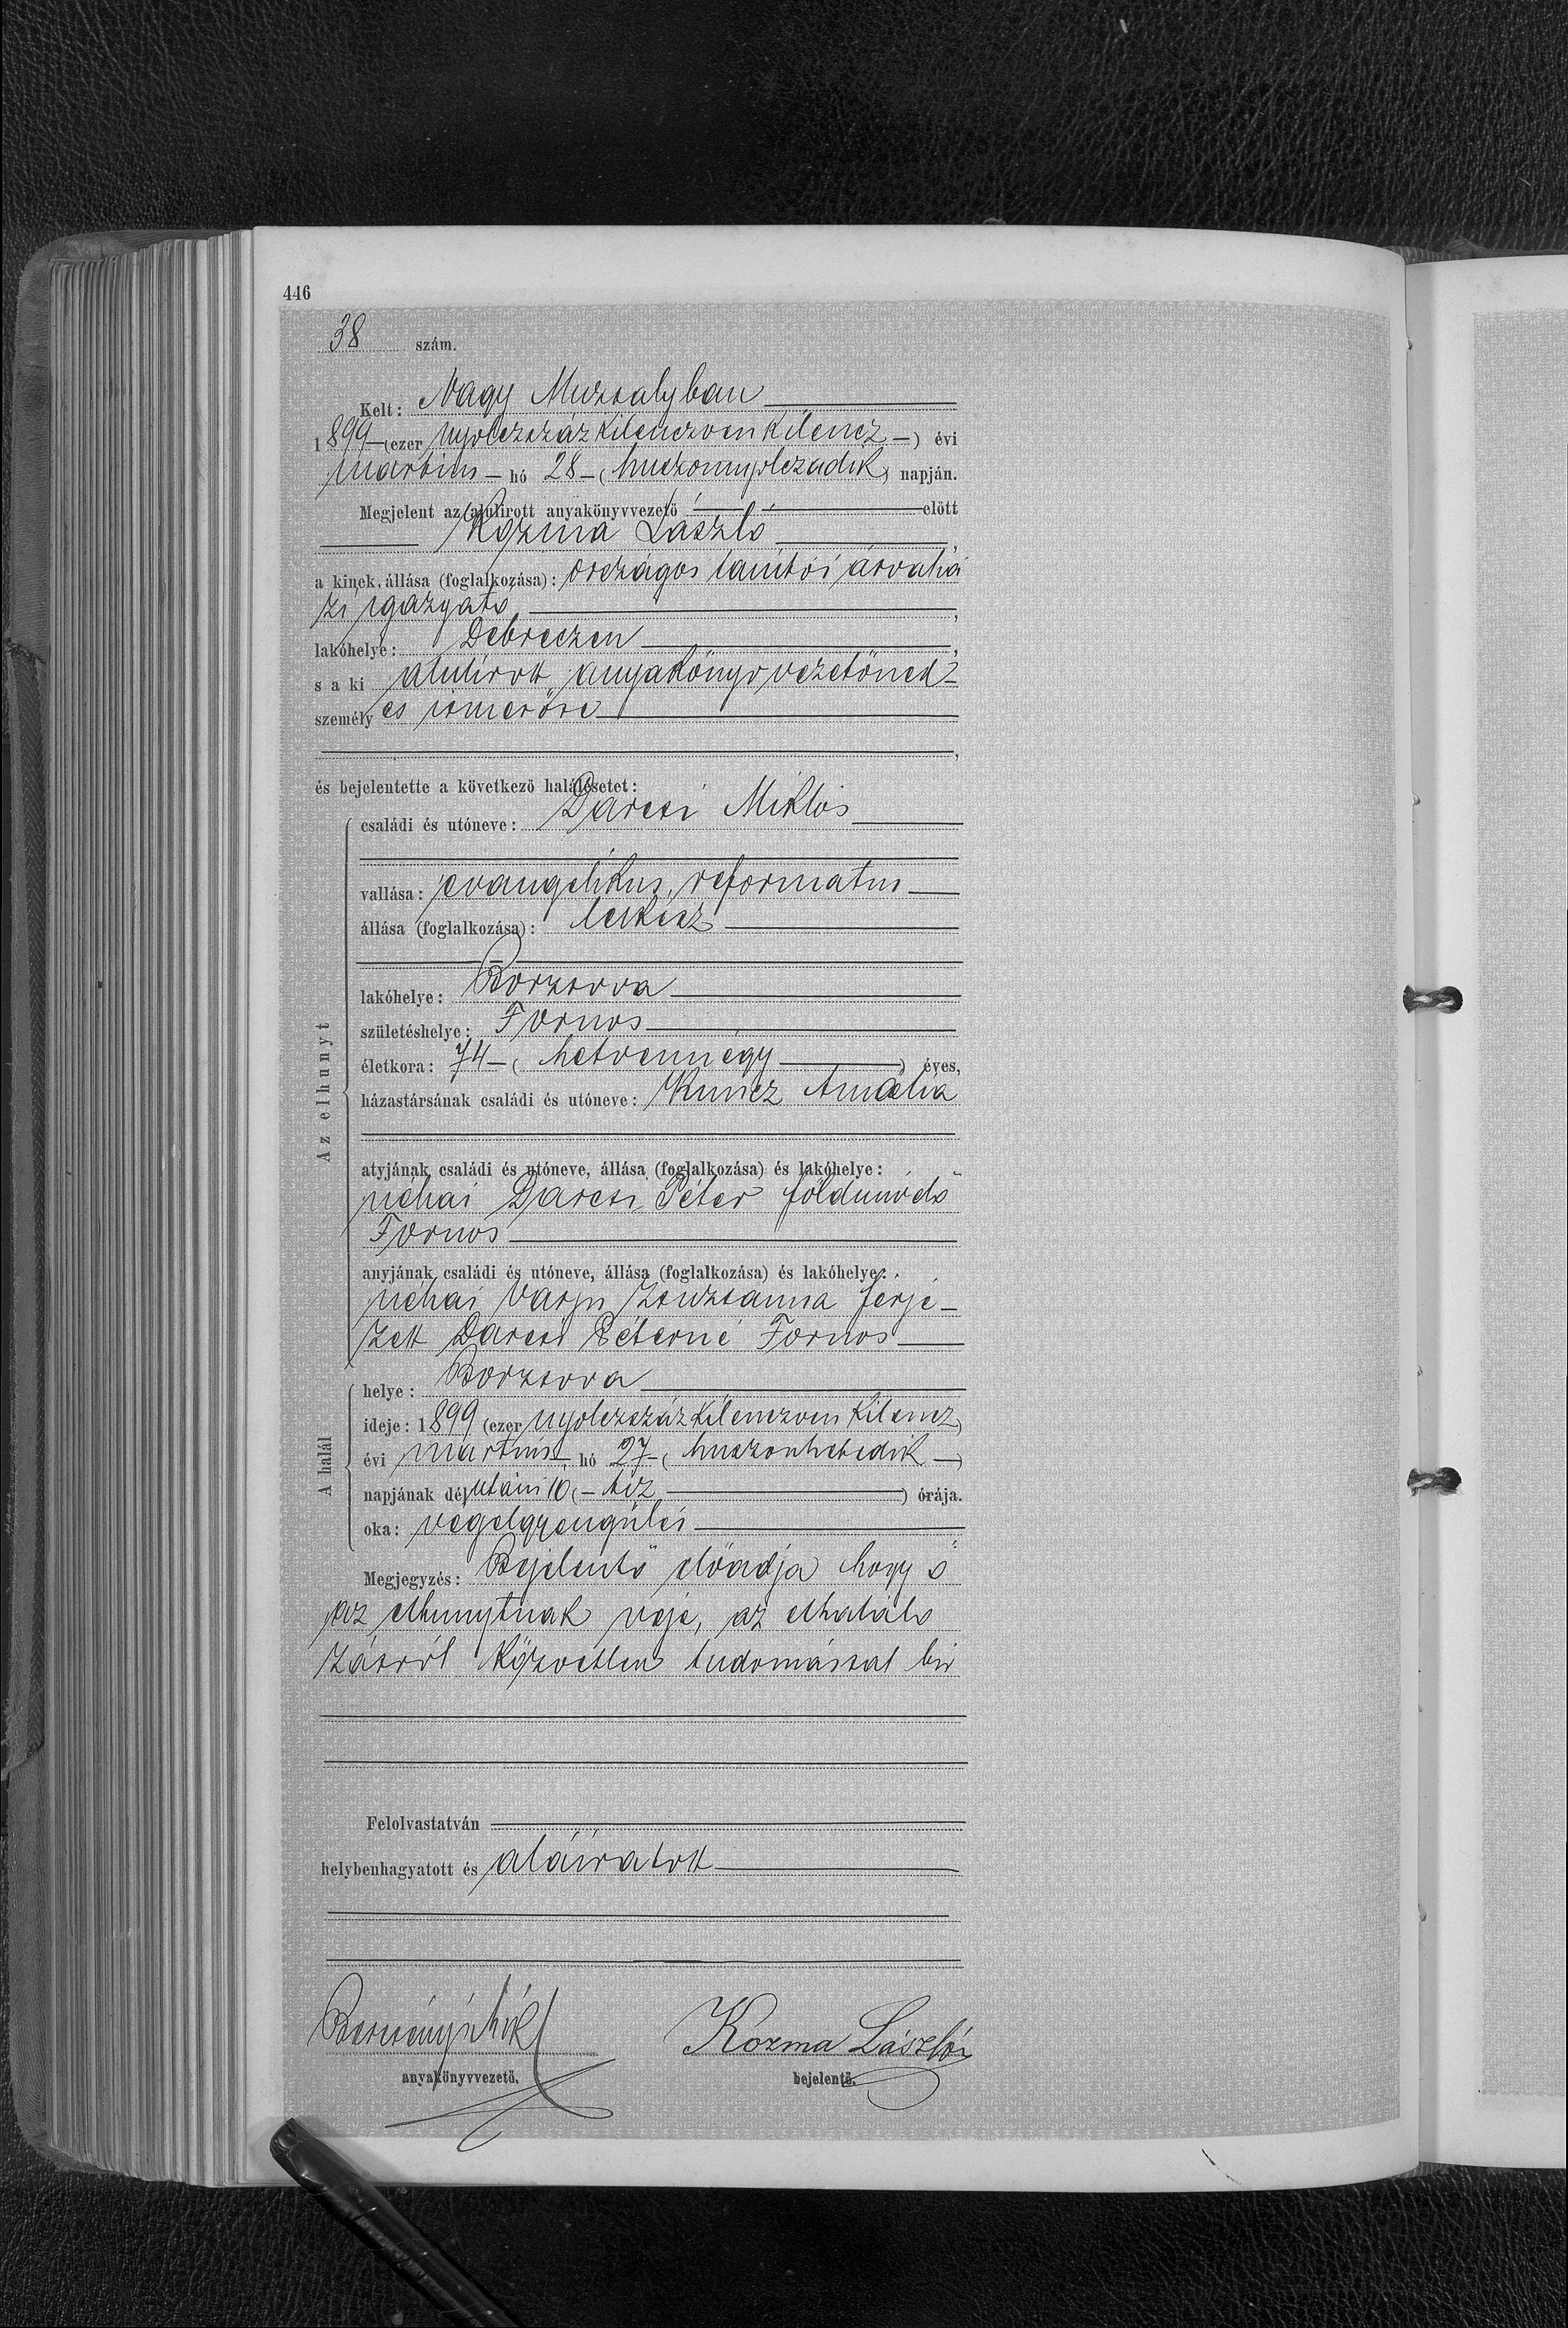 446
38 szám.
Kelt: Nagy Muzsalyban
1899 (ezer nyolczszáz kilenczven kilencz) évi
martius hó 28 (huszonnyolczadik) napján.
Megjelent az alulirott anyakönyvvezető előtt
Kozma László,
a kinek állása (foglalkozása): országos tanitói árvahá
zi igazgató,
lakóhelye: Debreczen,
s a ki alulirott anyakönyvvezetőnek
személyes ismerőse
,
és bejelentette a következő halálesetet:
Az elhunyt
családi és utóneve: Darcsi Miklós
vallása: evangelikus, reformatus
állása (foglalkozása): lelkész
lakóhelye: Borzsova
születéshelye: Fornos
életkora: 74 (hetvennégy) éves,
házastársának családi és utóneve: Kuncz Amália
atyjának családi és utóneve, állása (foglalkozása) és lakóhelye:
néhai Darcsi Péter földmüvelő
Fornos
anyjának családi és utóneve, állása (foglalkozása) és lakóhelye:
néhai Varju Zsuzsanna férje-
zett Darcsi Péterné Fornos
A halál
helye: Borzsova
ideje: 1899 (ezer nyolczszáz kilenczven kilencz)
évi martius hó 27 (huszonhetedik)
napjának délutáni 10 (tiz) órája.
oka: végelgyengülés
Megjegyzés: Bejelentő előadja hogy ő
az elhunytnak veje, az elhalálo
zásról közvetlen tudomással bir
Felolvastatván
helybenhagyatott és aláiratott
anyakönyvvezető.
Kozma László
bejelentő.